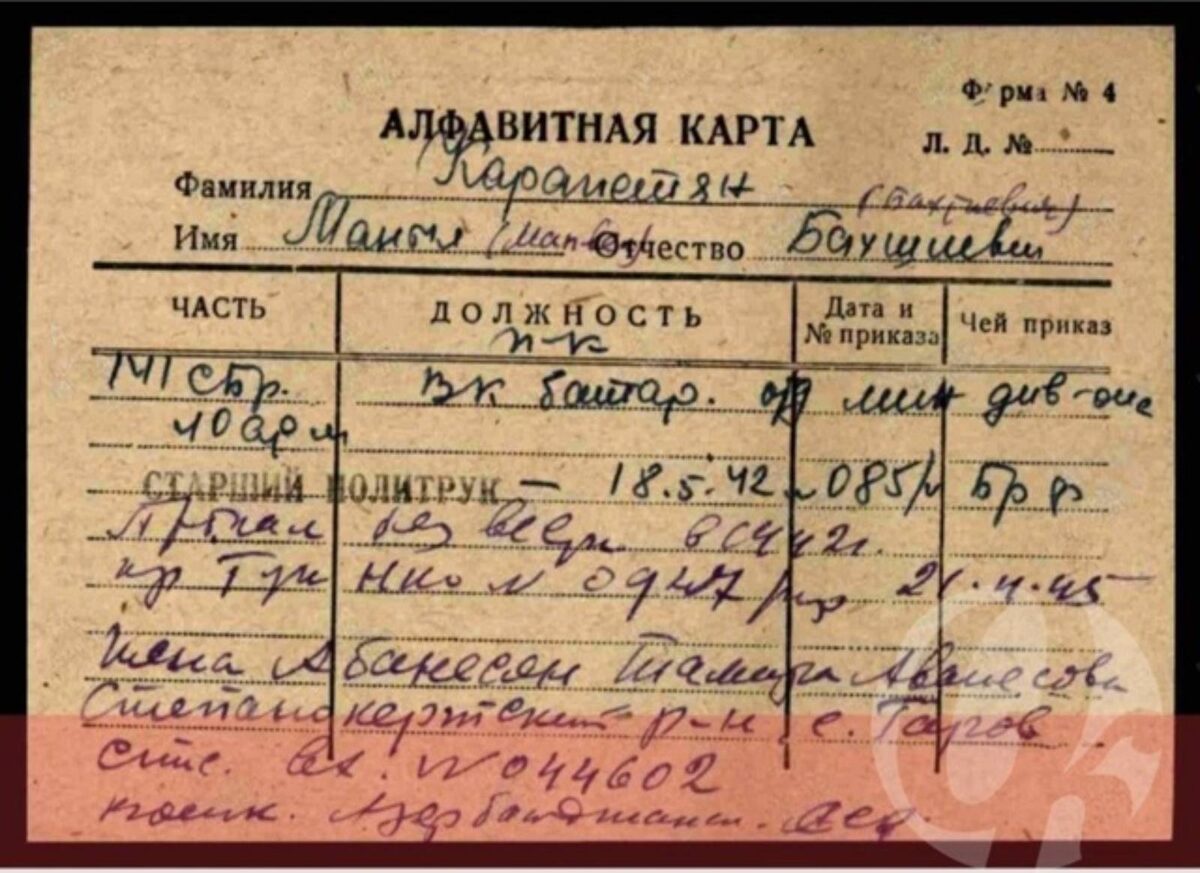 Форма № 4
АЛФАВИТНАЯ КАРТА
Л. Д. №
Фамилия Карапетян
Имя Манвел Отчество Бахшиевич
ЧАСТЬ ДОЛЖНОСТЬ Дата и № приказа Чей приказ
п-к
141 сбр. ВК батар. мин див-она
10 арм
СТАРШИЙ ПОЛИТРУК — 18.5.42 № 085/н Бр
Пропал без вести в 1942г.
пр ГУК НКО № 0947 21.4.45
жена Аванесян Тамара Аванесовна
Степанакертский р-н с. Гаров
вх. № 044602
Азербайджанск. ССР.